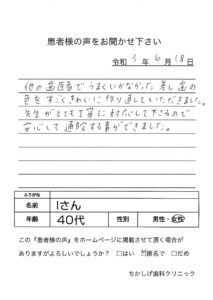 患者様の声をお聞かせ下さい
令和 3 年 6 月 18 日
他の歯医者でうまくいかなかった差し歯の
色をすごくきれいに作り直していただきました。
先生がとても丁寧に対応して下さるので
安心して通院する事ができました。
ふりがな
名前 Iさん
年齢 40代 性別 男性・女性
この『患者様の声』をホームページに掲載させて頂く場合が
ありますがよろしいでしょうか? □はい ☑匿名で □だめ
ちかしげ歯科クリニック